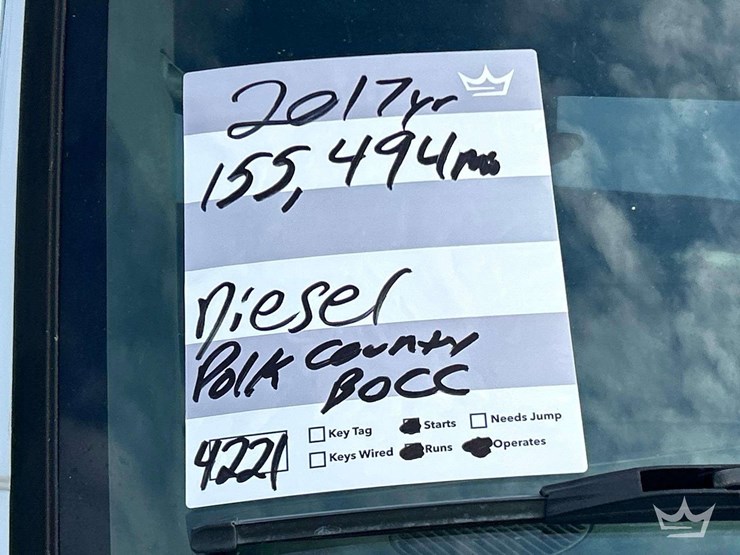 2017yr
155,494 mi
Diesel
Polk County
BOCC
4221
Key Tag
Starts
Needs Jump
Keys Wired
Runs
Operates